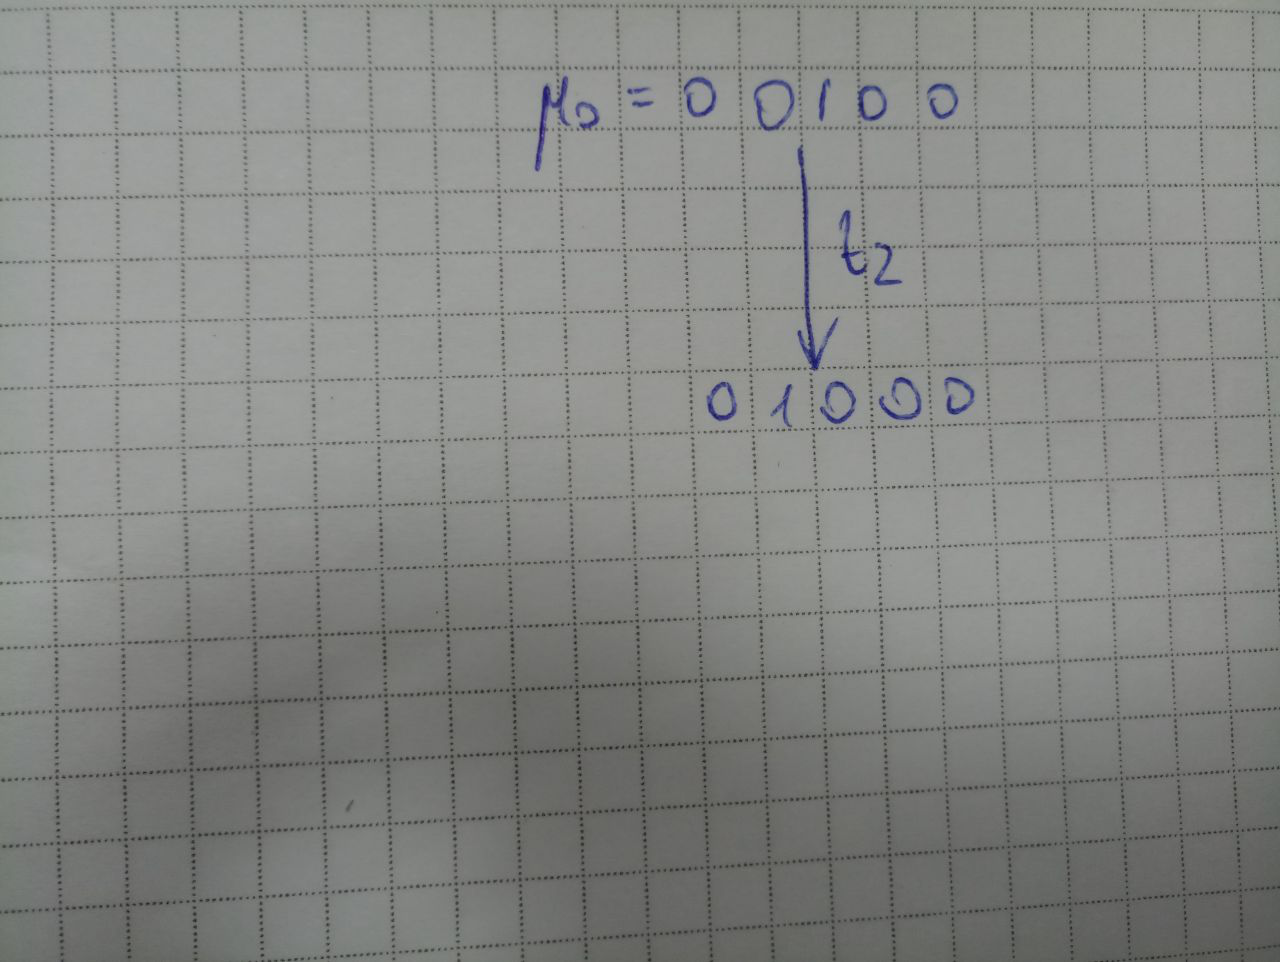 μ₀ = 0 0 1 0 0
t₂
0 1 0 0 0